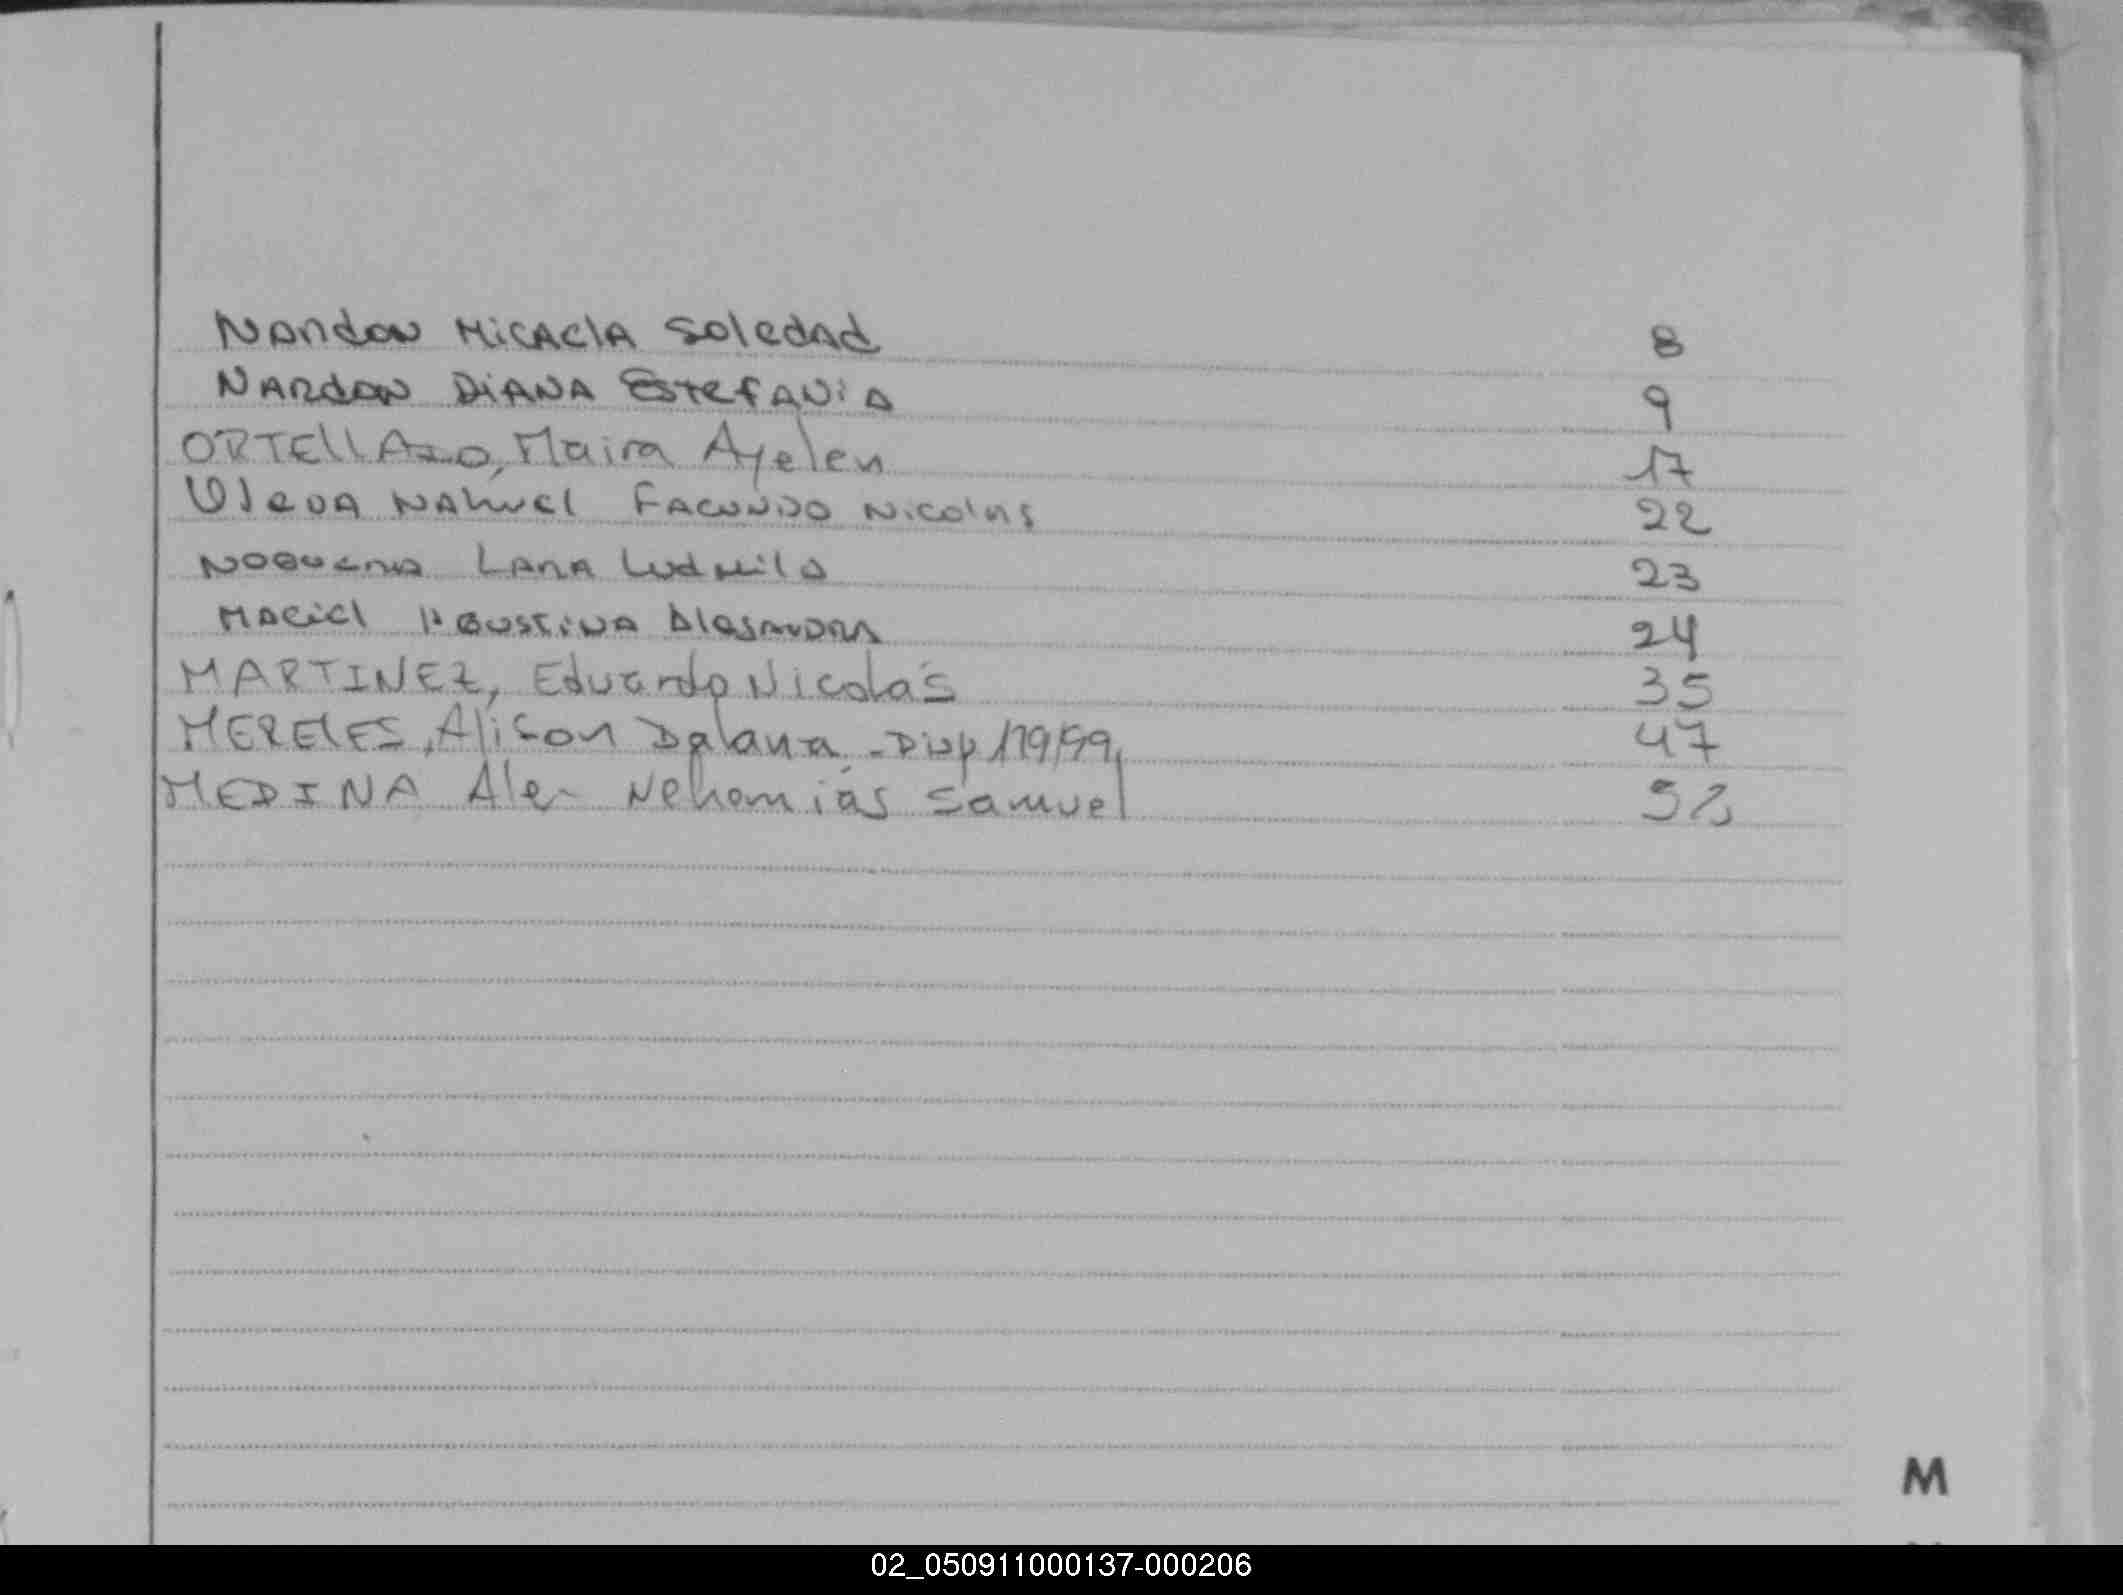 Nardon Micaela Soledad 8
Nardon Diana Estefania 9
ORTEllAdO, Maira Ayelen 17
Nahuel Facundo Nicolas 22
Noguera Lara Ludmila 23
Maciel Agustina Alesandra 24
MARTINEZ, Eduardo Nicolás 35
MERELES, Alison Daiana - Disp 179/99 47
MEDINA Nehemias Samuel
M
02_050911000137-000206